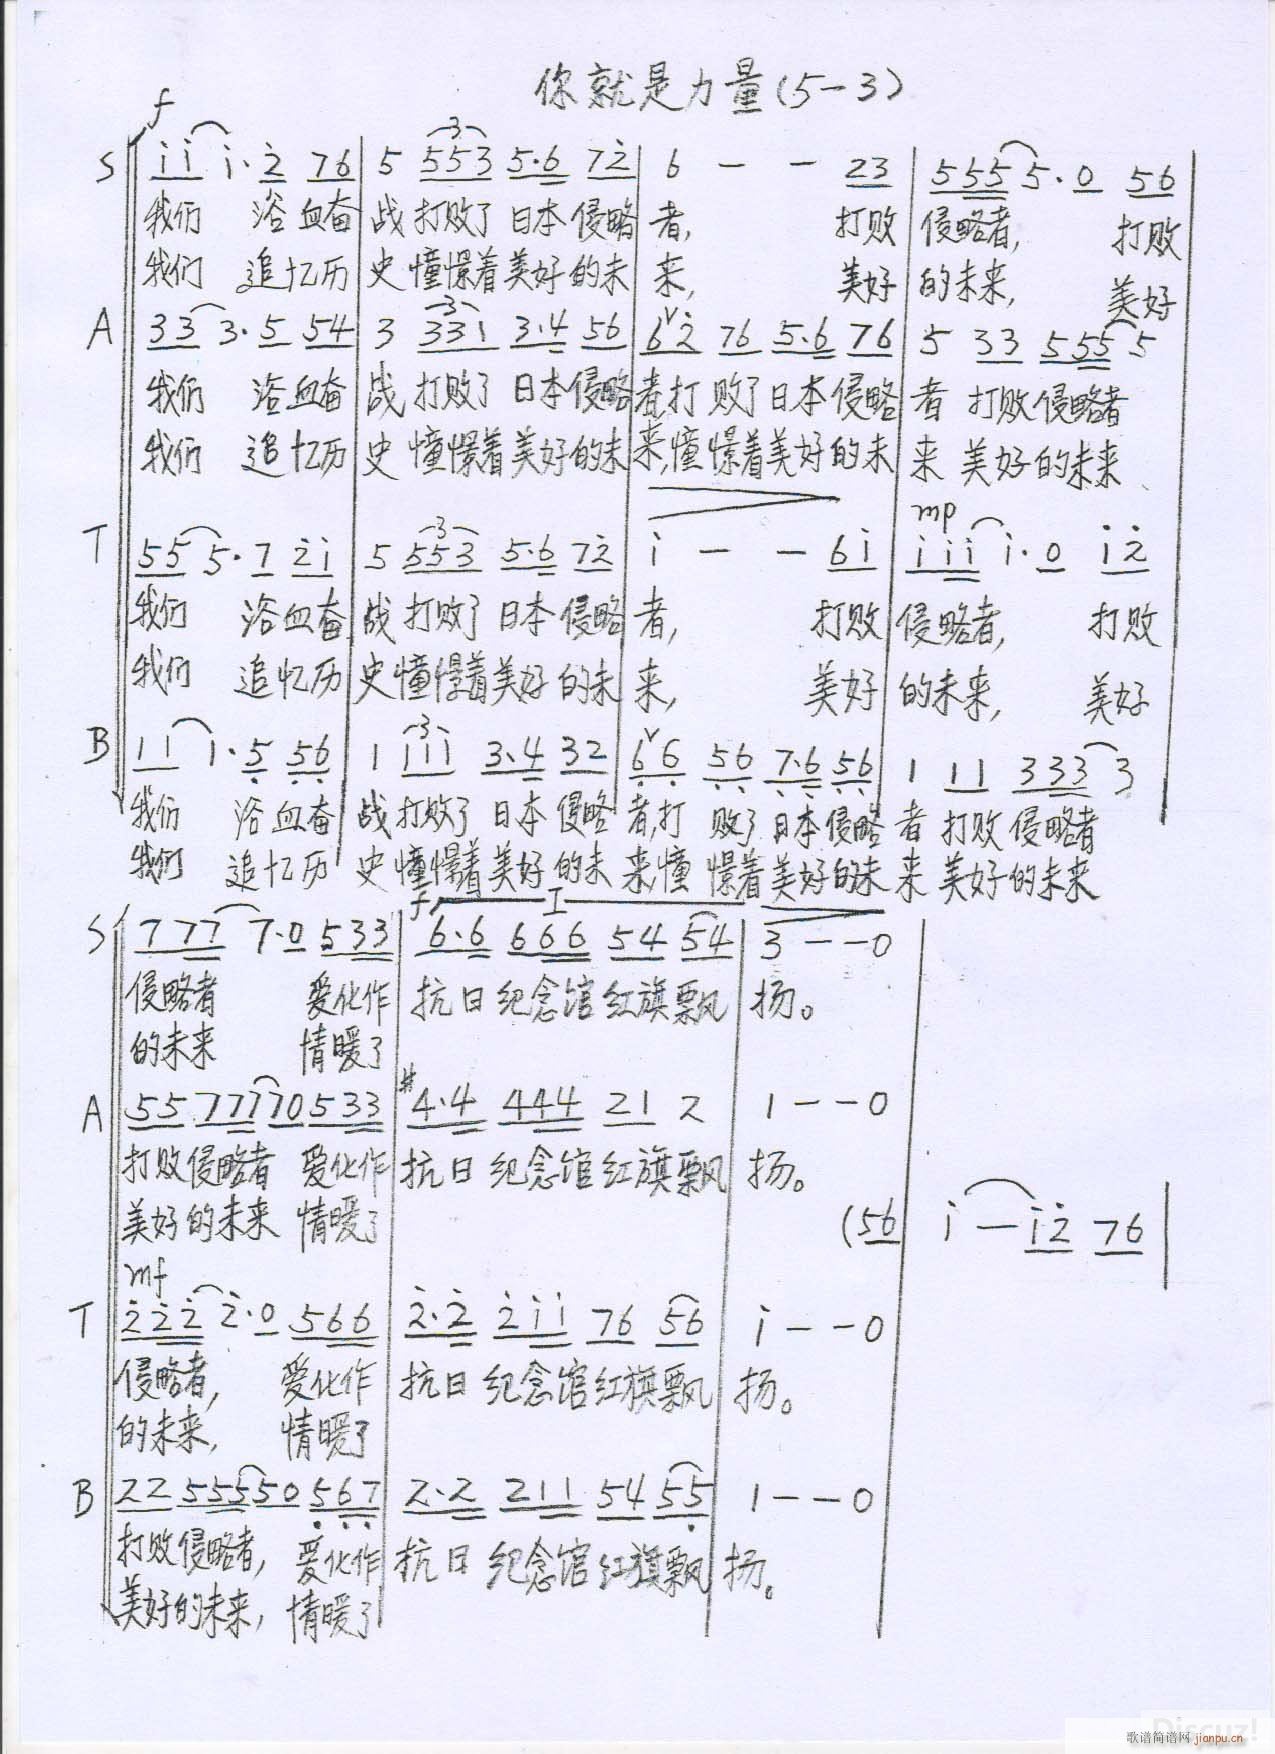 你就是力量(5-3)
f
S i i i· 2 7 6 | 5 5 5 3 5·6 7 2 | 6 - - 2 3 | 5 5 5 5· 0 5 6
我们 浴血奋 战打败了日本侵略 者, 打败 侵略者, 打败
我们 追忆历 史憧憬着美好的未 来, 美好 的未来, 美好
A 3 3 3· 5 5 4 | 3 3 3 1 3·4 5 6 | 6 2 7 6 5·6 7 6 | 5 3 3 5 5 5 5
我们 浴血奋 战打败了日本侵略 者,打败了日本侵略 者 打败侵略者
我们 追忆历 史憧憬着美好的未 来,憧憬着美好的未 来 美好的未来
mp
T 5 5 5· 7 2 i | 5 5 5 3 5·6 7 2 | i - - 6 i | i i i i· 0 i 2
我们 浴血奋 战打败了日本侵略 者, 打败 侵略者, 打败
我们 追忆历 史憧憬着美好的未 来, 美好 的未来, 美好
B 1 1 1· 5 5 6 | 1 1 1 1 3·4 3 2 | 6 6 5 6 7·6 5 6 | 1 1 1 3 3 3 3
我们 浴血奋 战打败了日本侵略 者,打败了日本侵略 者 打败侵略者
我们 追忆历 史憧憬着美好的未 来,憧憬着美好的未 来 美好的未来
f I
S 7 7 7 7·0 5 3 3 | 6·6 6 6 6 5 4 5 4 | 3 - - 0
侵略者 爱化作 抗日纪念馆红旗飘 扬。
的未来 情暖了
A 5 5 7 7 7 7 0 5 3 3 | #4·4 4 4 4 2 1 2 | 1 - - 0
打败侵略者 爱化作 抗日纪念馆红旗飘 扬。
美好的未来 情暖了
(5 6 | i - i 2 7 6 |
mf
T 2 2 2 2·0 5 6 6 | 2·2 2 i i 7 6 5 6 | i - - 0
侵略者, 爱化作 抗日纪念馆红旗飘 扬。
的未来, 情暖了
B 2 2 5 5 5 5 0 5 6 7 | 2·2 2 1 1 5 4 5 5 | 1 - - 0
打败侵略者, 爱化作 抗日纪念馆红旗飘 扬。
美好的未来, 情暖了
Discuz!
歌谱简谱网 jianpu.cn